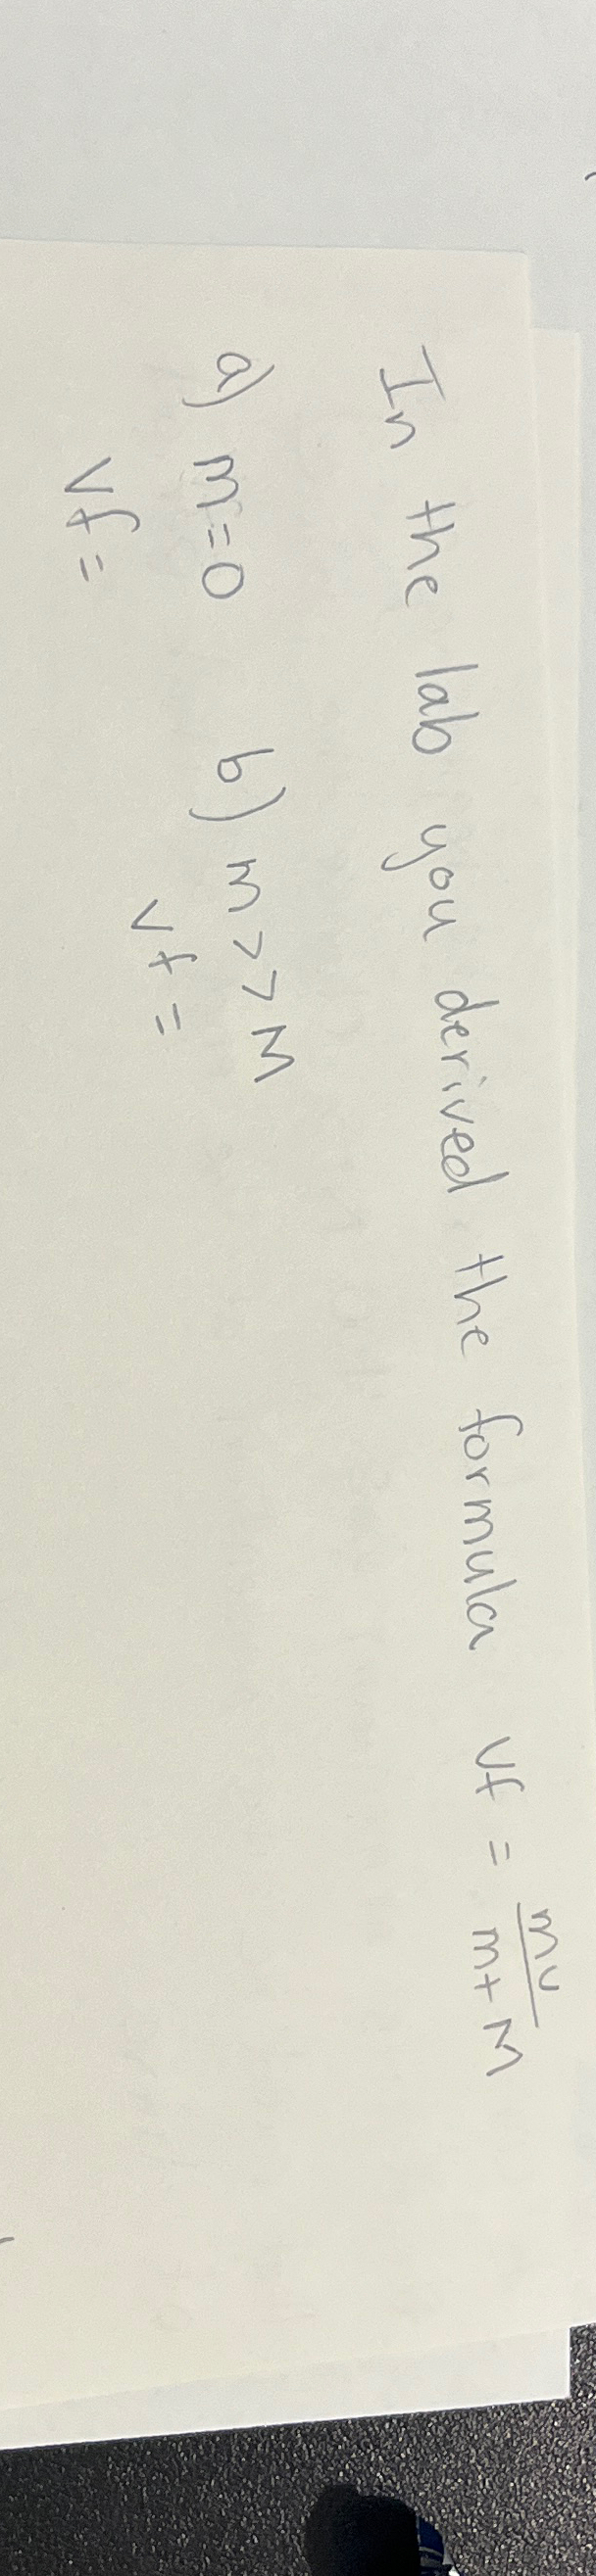 In the lab you derived the formula vf = mv / m+M
a) m=0 b) m>>M
vf = vf =